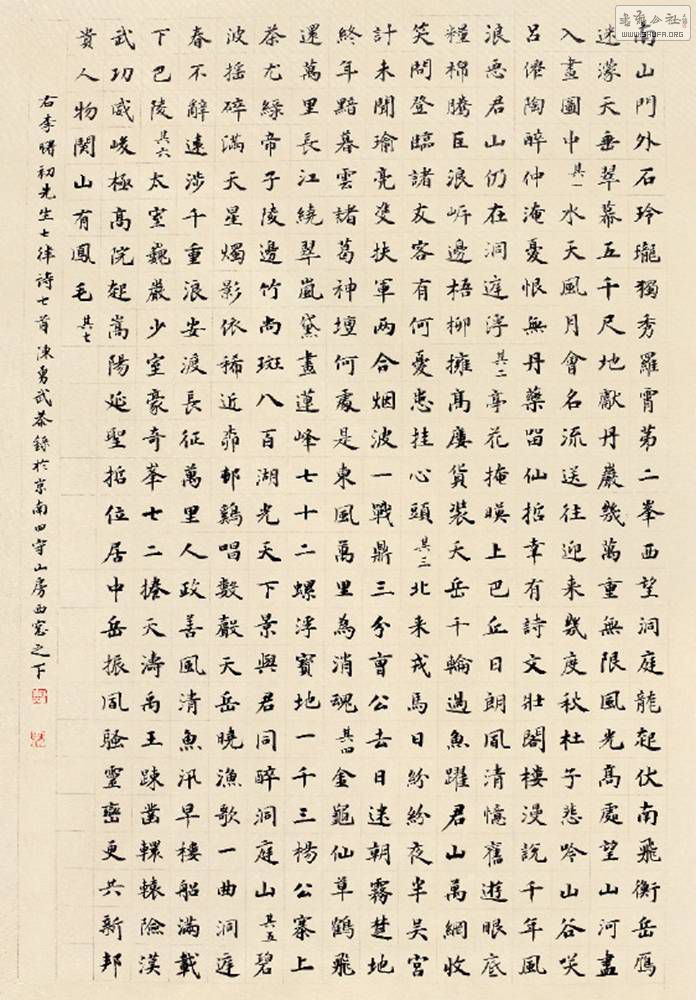 南山門外石玲瓏獨秀羅霄第二峯西望洞庭龍起伏南飛衡岳雁
迷濛天垂翠幕五千尺地獻丹巖幾萬重無限風光高處望山河盡
入畫圖中其一水天風月會名流送往迎来幾度秋杜子悲吟山谷咲
呂僊陶醉仲淹憂恨無丹藥留仙掐幸有詩文壯閣樓漫說千年風
浪惡君山仍在洞庭浮其二亭花掩暎上巴丘日朗風清憶舊遊眼底
糧棉騰巨浪岍邊梧柳擁高廔貨裝天岳千輪過魚躍君山萬網收
笑問登臨諸友客有何憂患挂心頭其三北来戎馬日紛紛夜半吴宫
計未聞瑜亮雙扶軍兩合烟波一戰鼎三分曹公去日迷朝霧楚地
終年黯暮雲諸葛神壇何處是東風萬里為消魂其四金龜仙草鶴飛
還萬里長江繞翠嵐黛畫蓮峰七十二螺浮寳地一千三楊公寨上
茶尤綠帝子陵邊竹尚斑八百湖光天下景與君同醉洞庭山其五碧
波摇碎滿天星燭影依稀近邨鷄唱數聲天岳曉漁歌一曲洞庭
春不辭遠涉千重浪安渡長征萬里人政善風清魚汛早樓船滿載
下巴陵其六太室巍巖少室豪奇峯七二捧天濤禹王踈鑿轘轅險漢
武功咸峻極高院起嵩陽延聖掐位居中岳振風騷靈巒更共新邦
貴人物関山有鳳毛其七
右李曙初先生七律詩七首陳勇武恭錄於京南四守山房西窓之下
书法公社
WWW.SHUFA.ORG